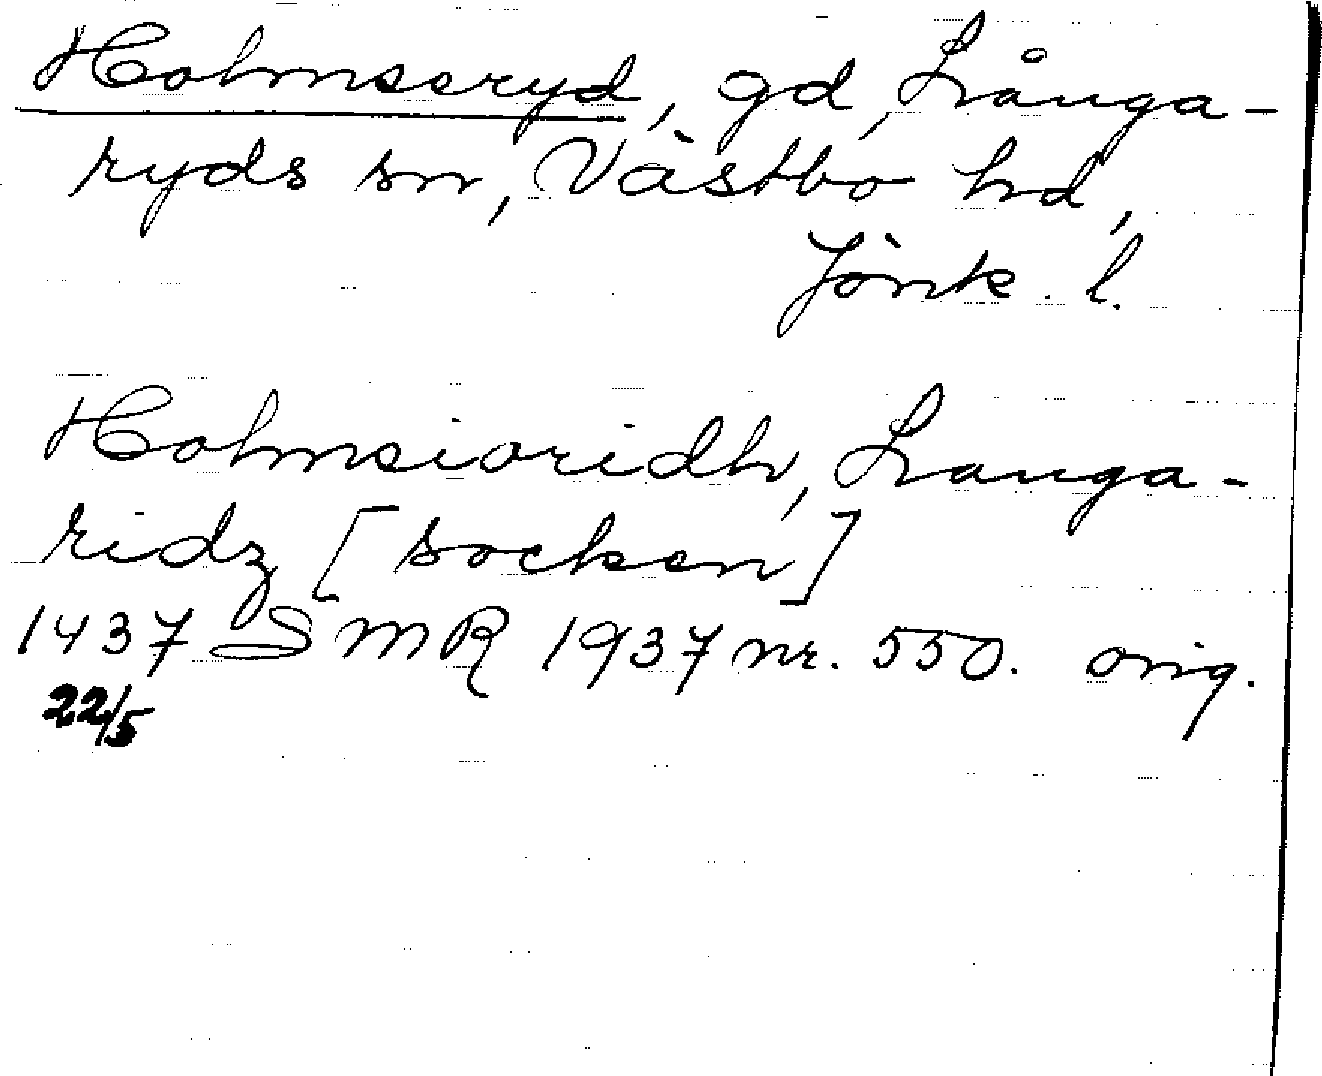 Holmseryd, gd, Långa-
ryds sn, Västbo hd,
Jönk. l.
Holmsioridh, Langa-
ridz [socken]
1437 SMR 1937 nr. 550. orig.
22/5